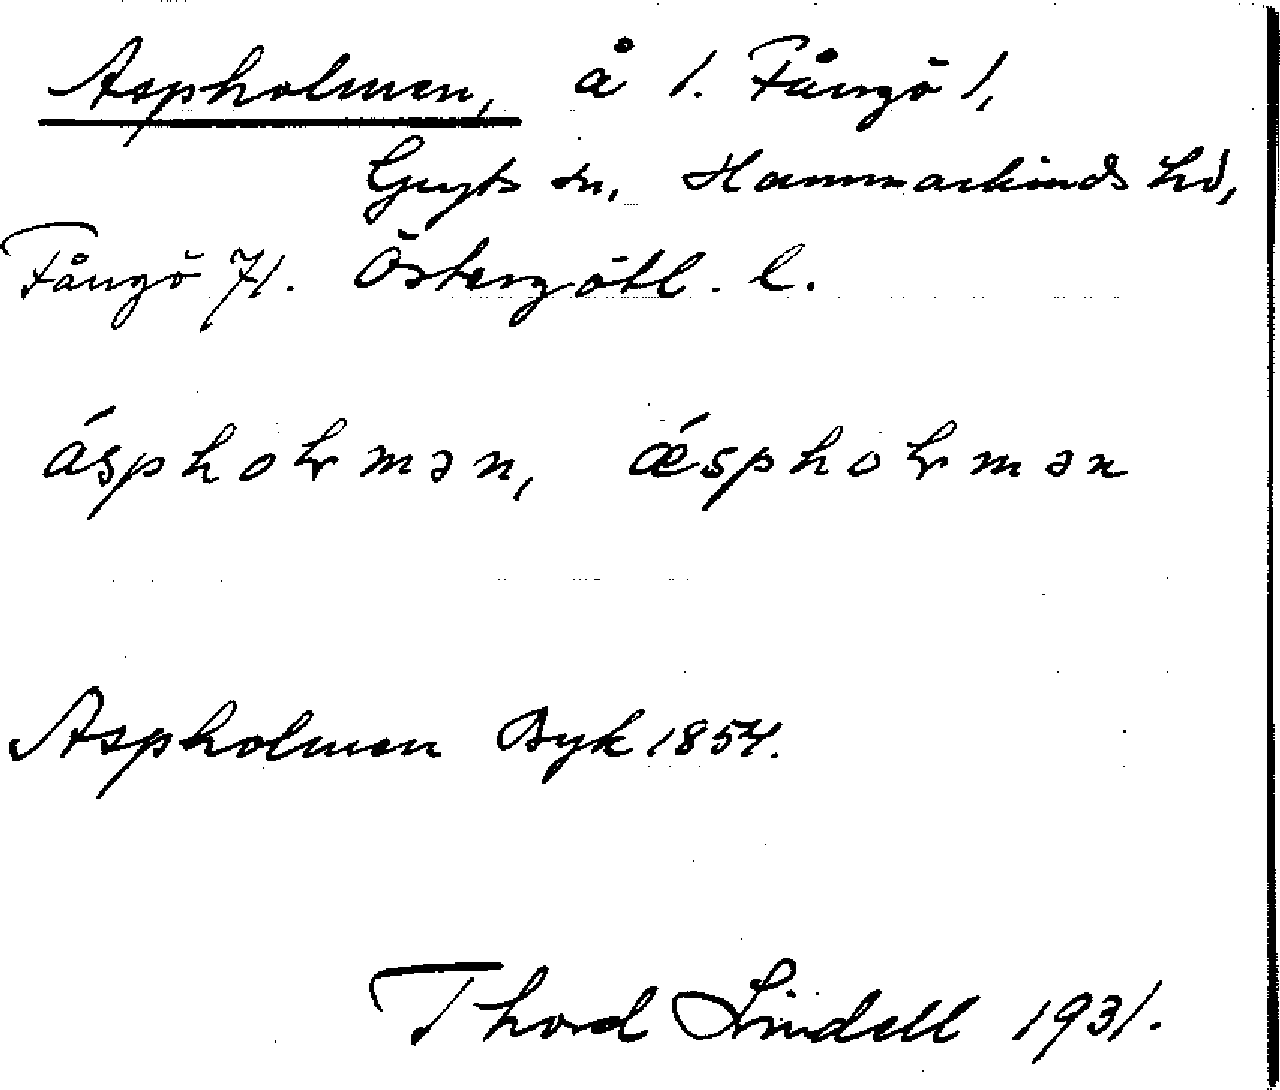 Aspholmen, å 1. Fångö 1,
Gryts sn, Hammarkinds hd,
Fångö 71. Östergötl. l.
áspholmən, ǽspholmən
Aspholmen Byk 1854.
Thord Lindell 1931.